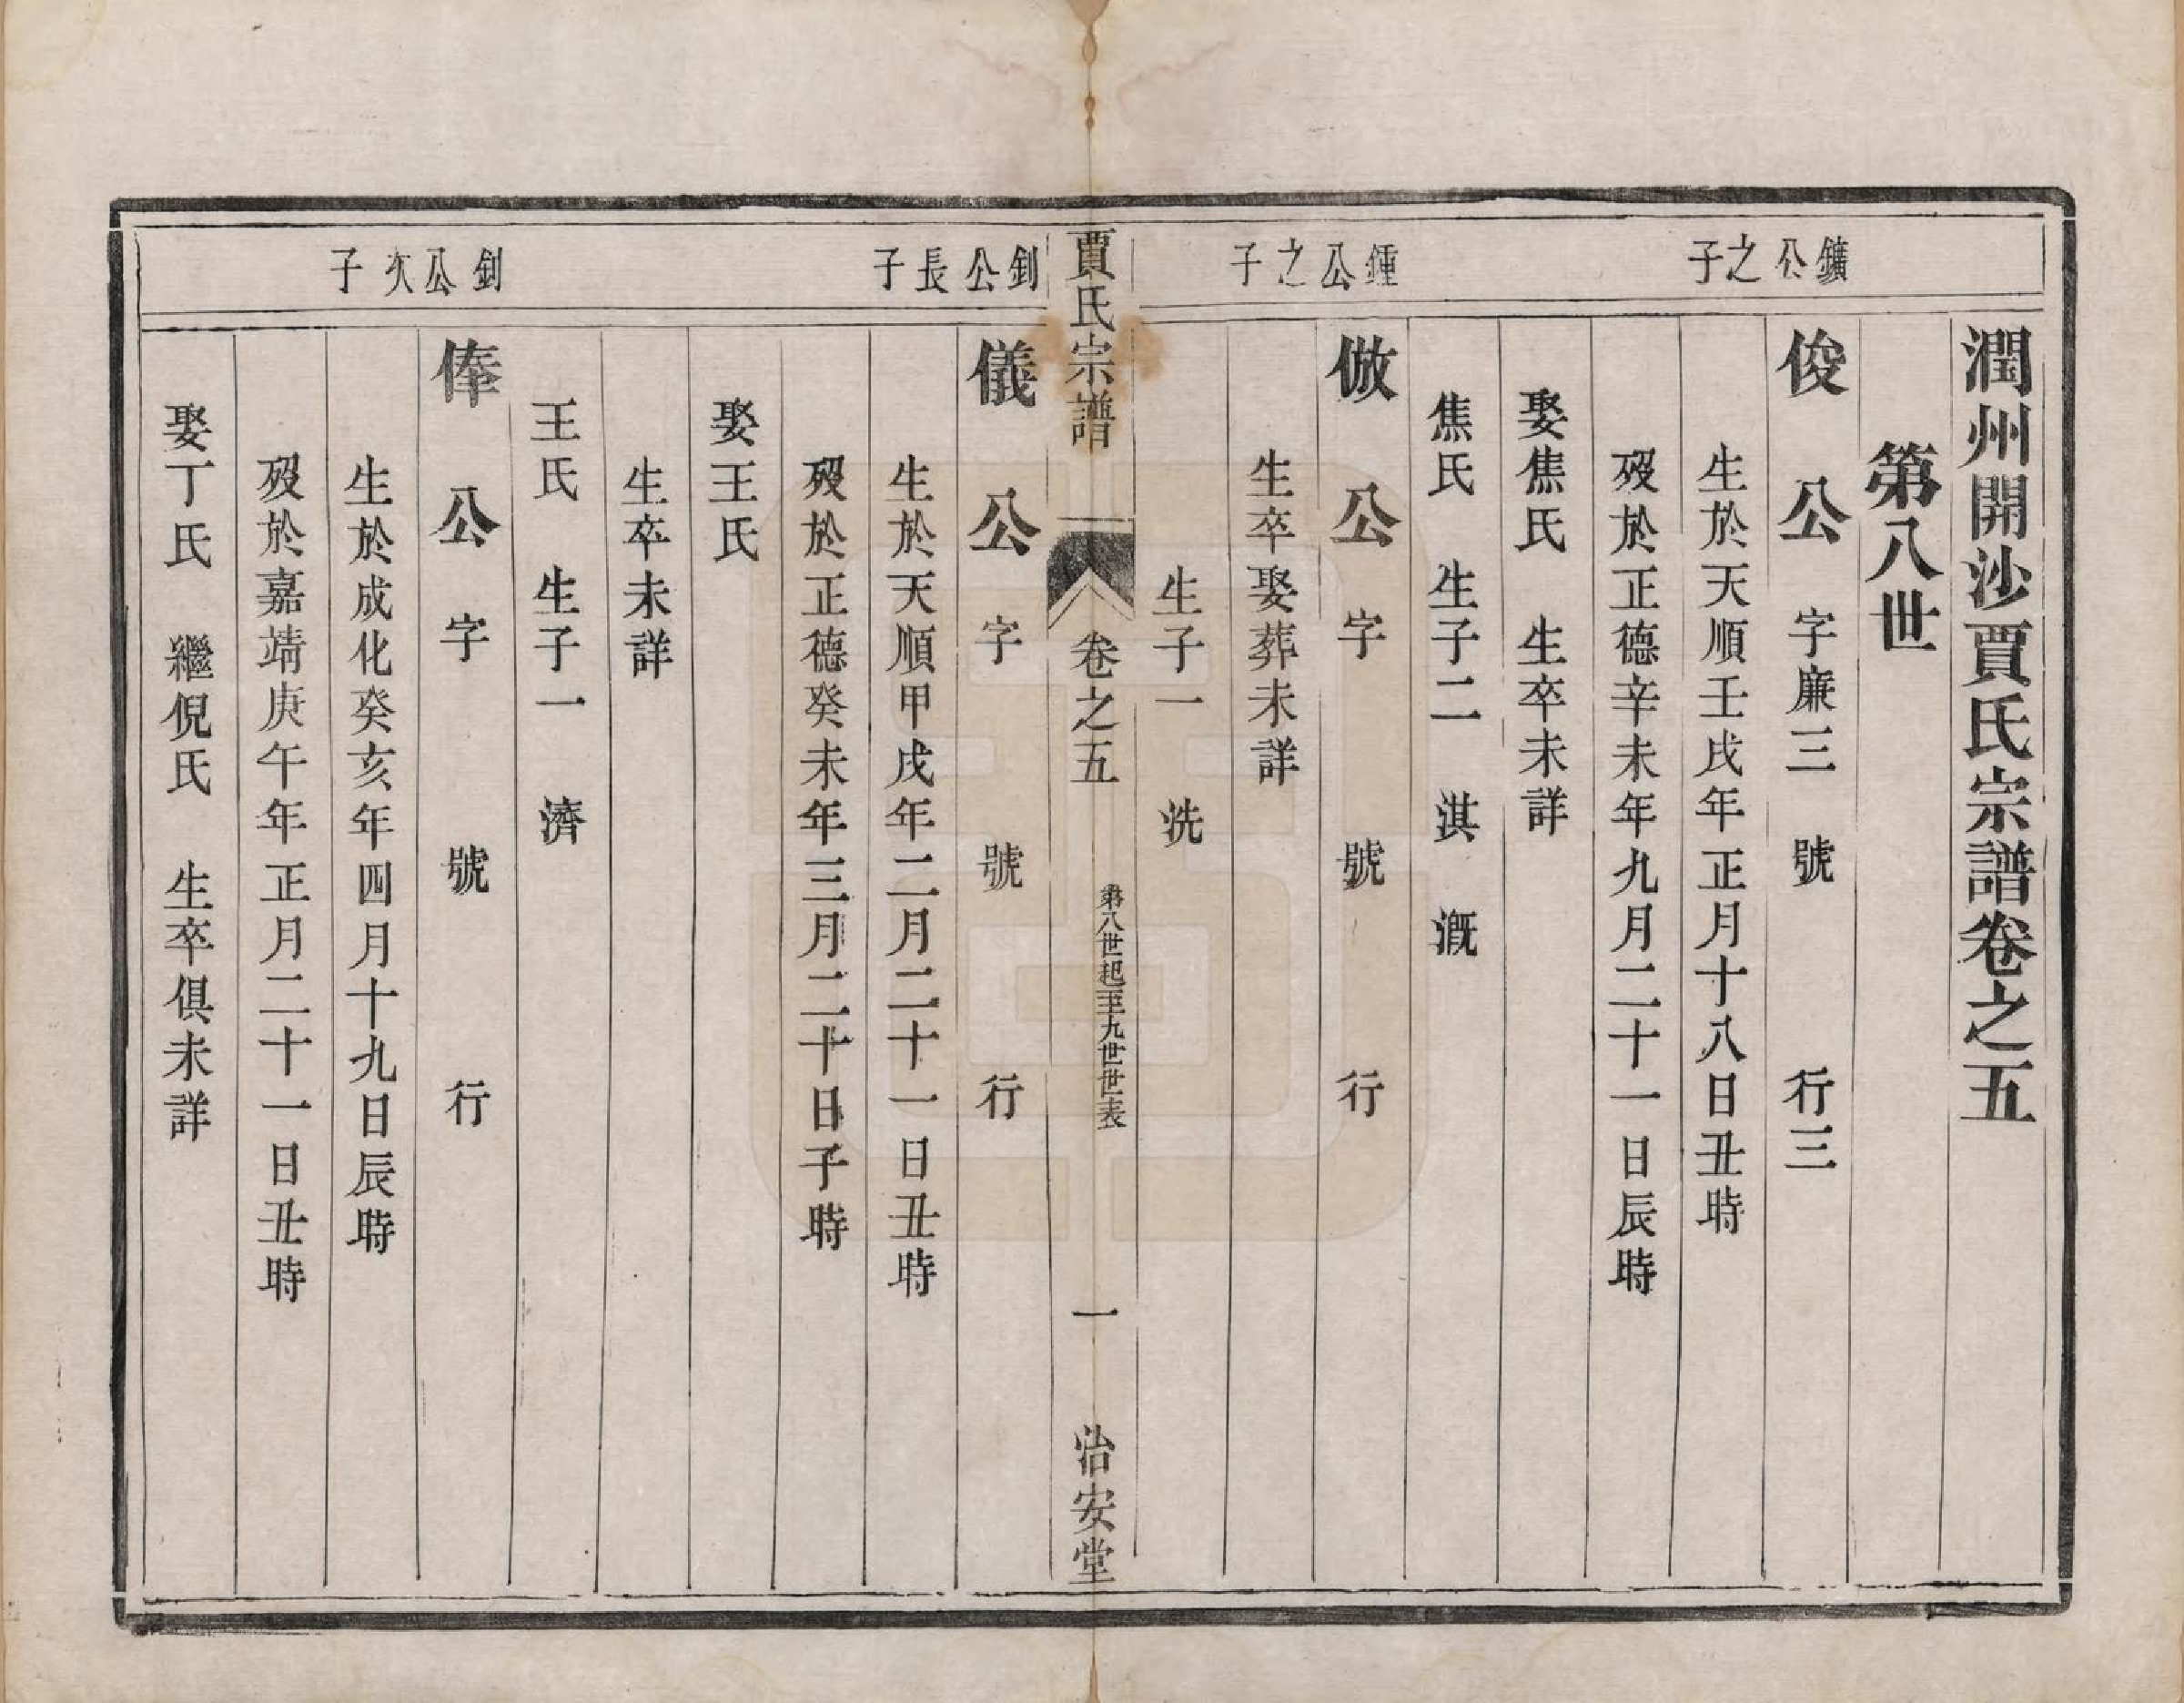 潤州開沙賈氏宗譜卷之五
第八世
鑛公之子
俊公 字廉三 號 行三
生於天順壬戌年正月十八日丑時
歿於正德辛未年九月二十一日辰時
娶焦氏 生卒未詳
焦氏 生子二 淇 漑
鍾公之子
倣公 字 號 行
生卒娶葬未詳
生子一 洗
賈氏宗譜 卷之五 第八世起至九世世表 一 治安堂
釗公長子
儀公 字 號 行
生於天順甲戌年二月二十一日丑時
歿於正德癸未年三月二十日子時
娶王氏
生卒未詳
王氏 生子一 濟
釗公次子
俸公 字 號 行
生於成化癸亥年四月十九日辰時
歿於嘉靖庚午年正月二十一日丑時
娶丁氏 繼倪氏 生卒俱未詳